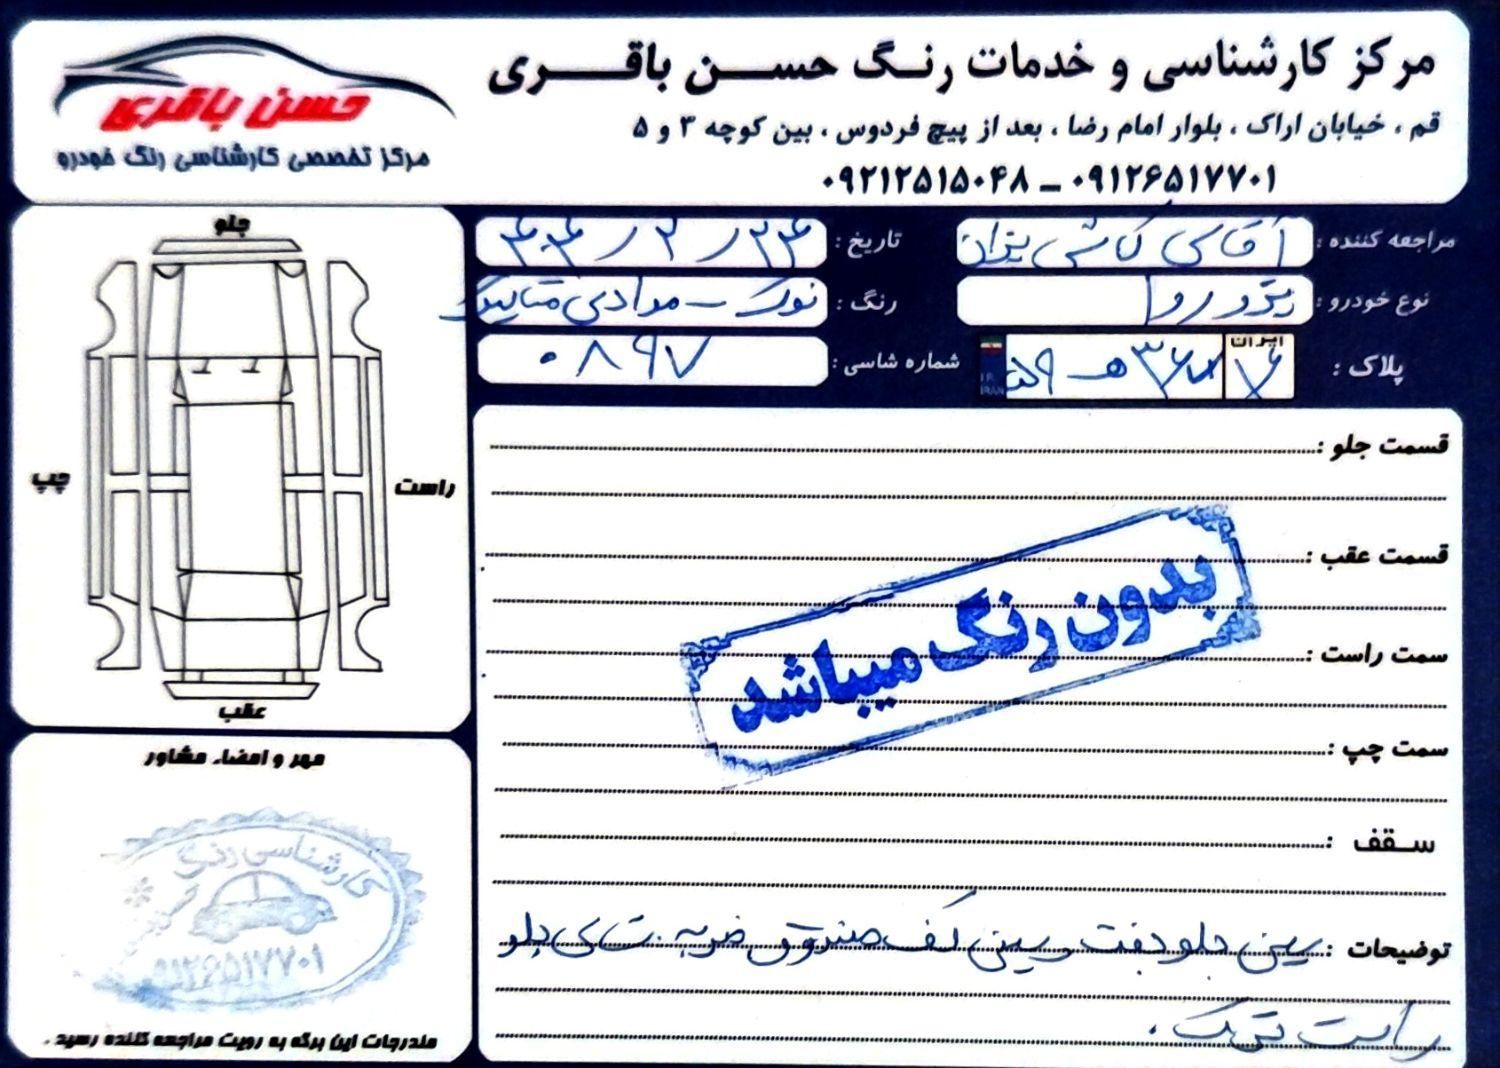 مرکز کارشناسی و خدمات رنگ حسن باقری
قم ، خیابان اراک ، بلوار امام رضا ، بعد از پیچ فردوس ، بین کوچه ۳ و ۵
۰۹۱۲۶۵۱۷۷۰۱ - ۰۹۲۱۲۵۱۵۰۴۸
حسن باقری
مرکز تخصصی کارشناسی رنگ خودرو
مراجعه کننده : آقای کاشی
تاریخ : ۴۰۴/۲/۲۴
نوع خودرو :
رنگ : نوک - مدادی متالیک
پلاک : ایران ۵۹ هـ
I.R. IRAN
شماره شاسی : ۰۸۹۷
جلو
چپ
راست
عقب
قسمت جلو :
قسمت عقب :
سمت راست :
سمت چپ :
سقف :
بدون رنگ میباشد
توضیحات : سینی جلو جفت سینی کف صندوق ضربه شاسی جلو
راست ترک .
مهر و امضاء مشاور
کارشناسی رنگ
۰۹۱۲۶۵۱۷۷۰۱
مندرجات این برگه به رویت مراجعه کننده رسید .